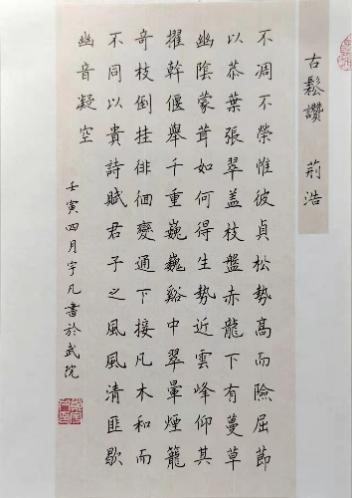 古鬆讚 荊浩
不凋不榮惟彼貞松勢高而險屈節
以恭葉張翠盖枝盤赤龍下有蔓草
幽陰蒙茸如何得生勢近雲峰仰其
擢幹偃舉千重巍巍谿中翠暈煙籠
奇枝倒挂徘徊變通下接凡木和而
不同以貴詩賦君子之風風清匪歇
幽音凝空
壬寅四月宇凡書於武院